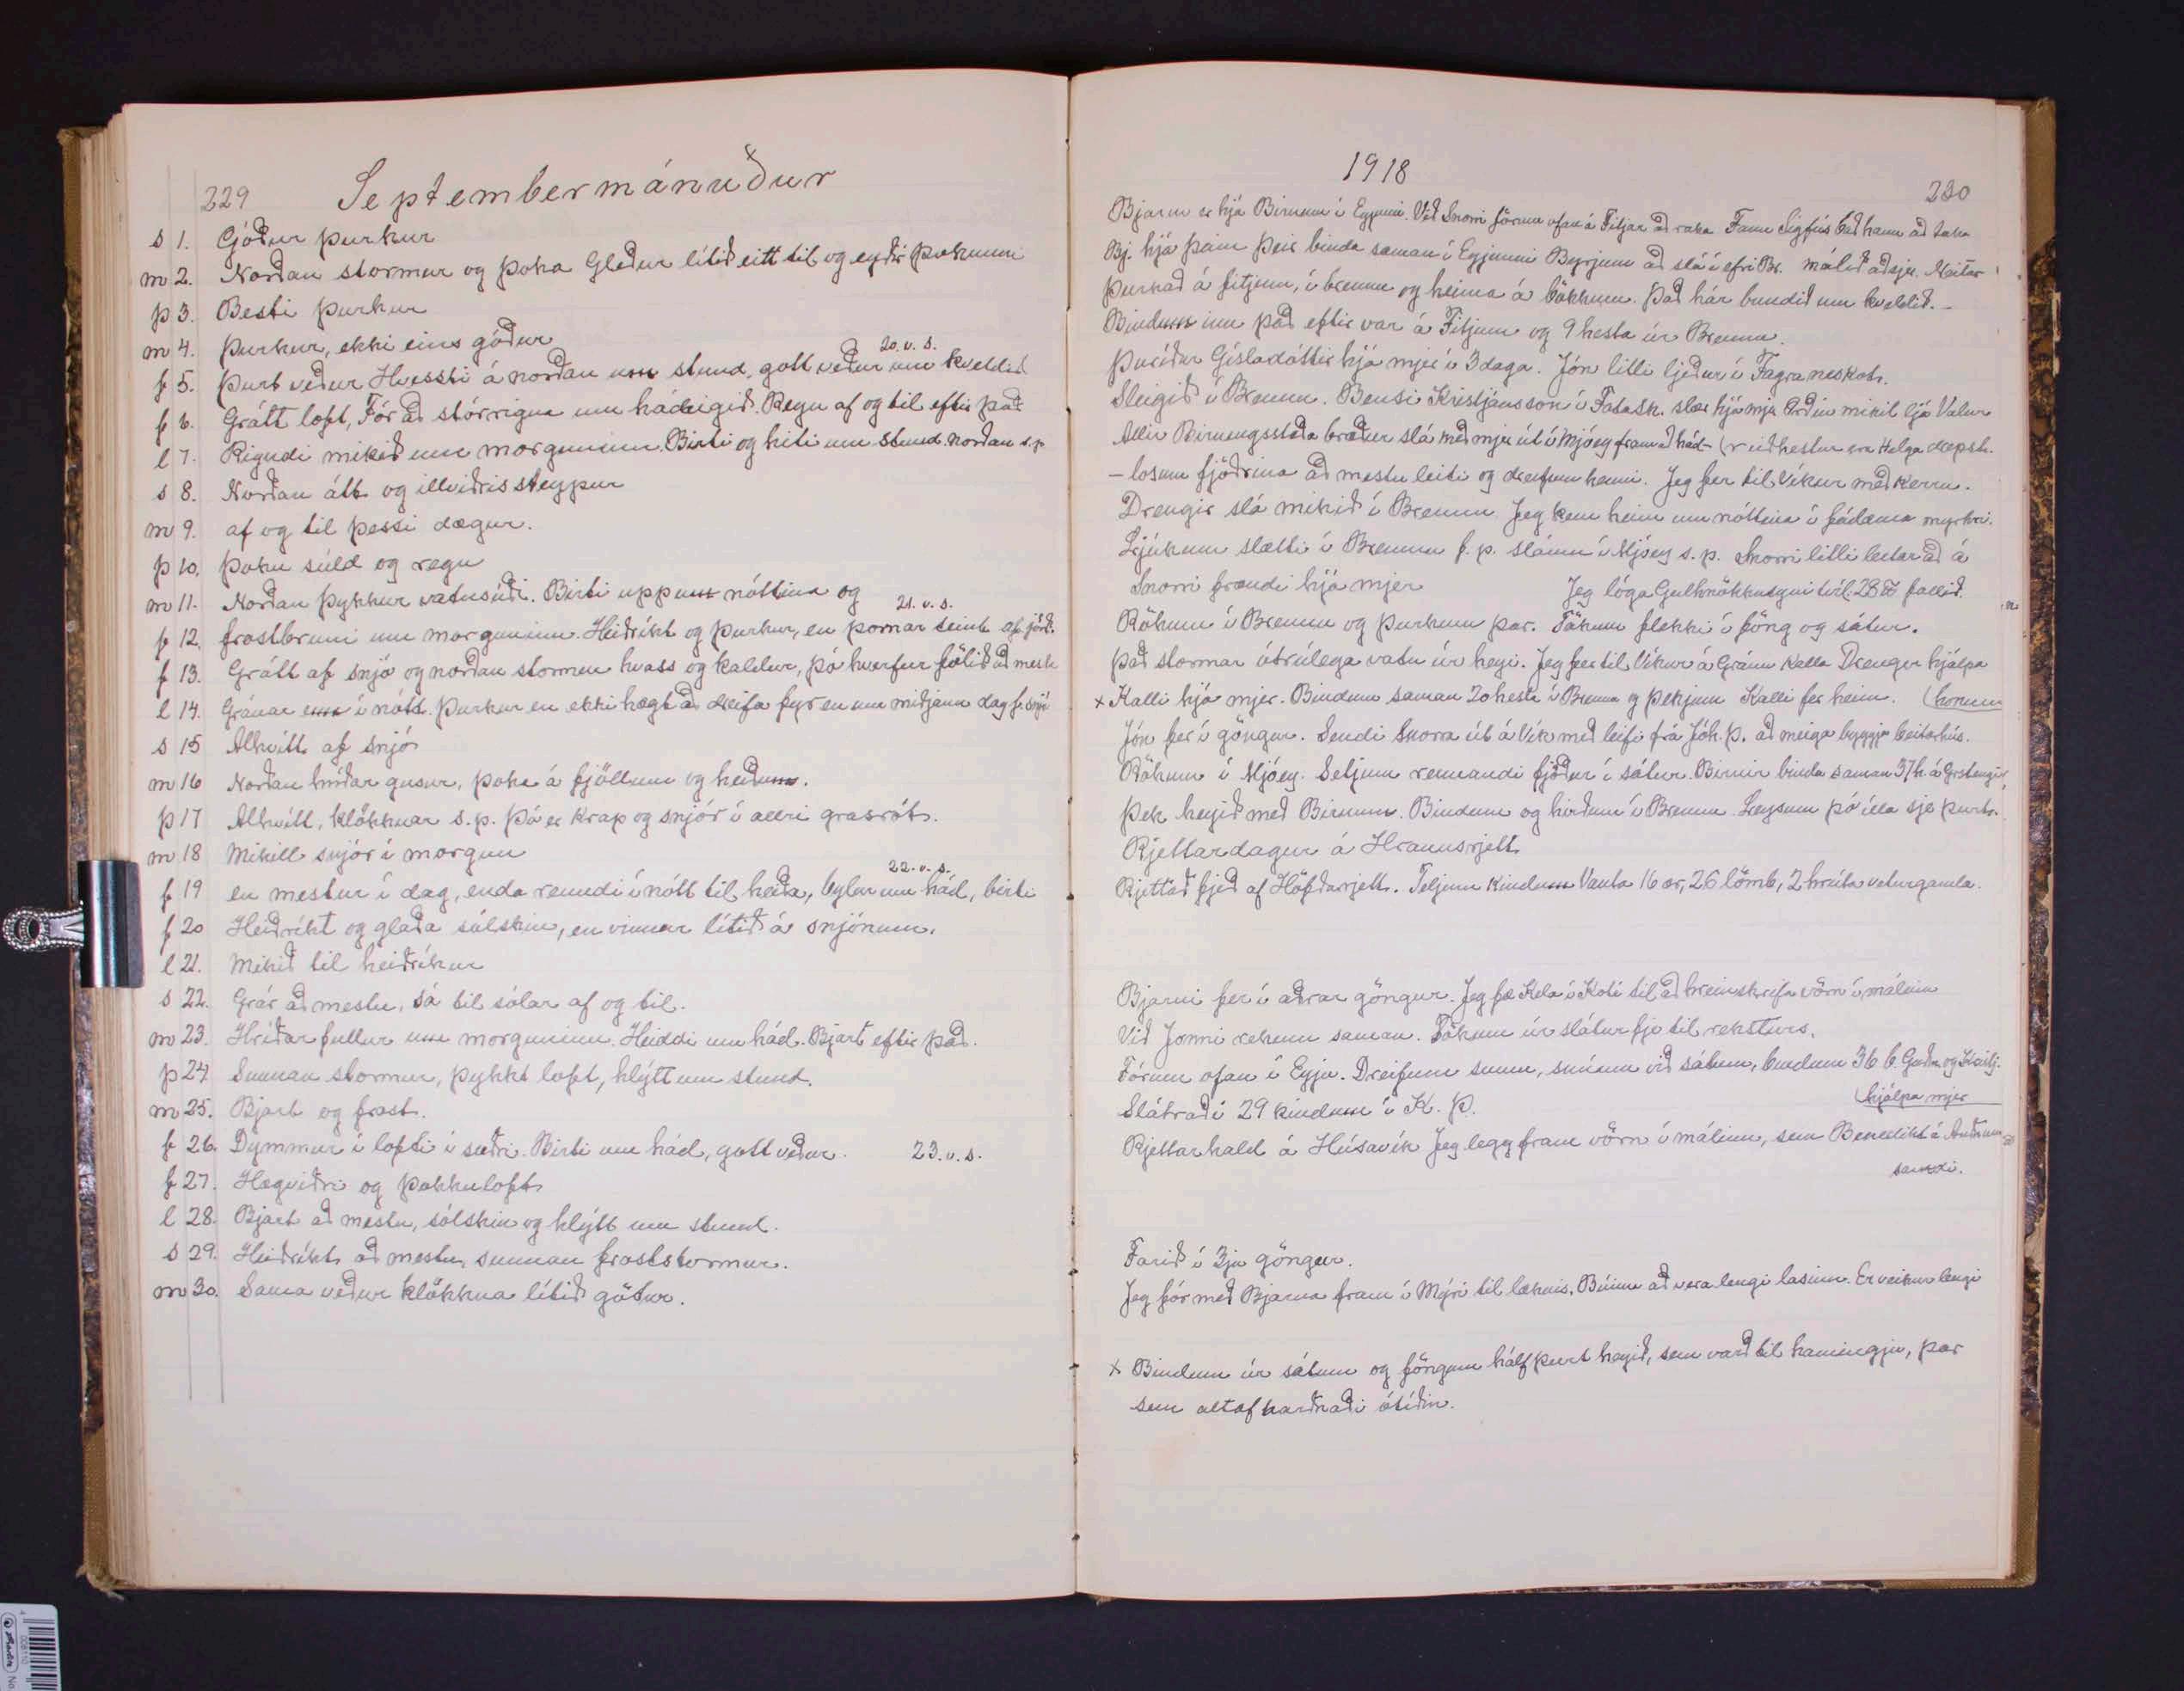 229 Septembermánuður
s 1. Góður þurkur
m 2. Norðan stormur og þoka Gleður lítið eitt til og eyðir þokunni
þ 3. Besti þurkur
m 4. Þurkur, ekki eins góður
20. v. s.
f 5. Þurt veður Hvessti á norðan um stund, gott veður um kveldið
f 6. Grátt loft, Fór að stórrigna um hádeigið. Regn af og til eftir það
l 7. Rigndi mikið um morguninn. Birti og hiti um stund. norðan s.p.
s 8. Norðan átt og illviðris steypur
m 9. af og til þessi dægur.
þ 10. Þoku súld og regn
m 11. Norðan þykkur vatnsúði. Birti upp um nóttina og
21. v. s.
f 12. frostbruni um morguninn. Heiðríkt og þurkur, en þornar seint af jörð.
f 13. Grátt af snjó og norðan stormur hvass og kaldur, þó hverfur fölið að mestu
l 14. Gránar enn í nótt. Þurkur en ekki hægt að dreifa fyr en um miðjann dag f. snjó
s 15 Alhvítt af snjó
m 16 Norðan hríðar gusur, þoka á fjöllum og heiðum.
þ 17 Alhvítt, klökknar s.p. Þó er krap og snjór í allri grasrót.
m 18 Mikill snjór í morgun
22. v. s.
f 19 en mestur í dag, enda renndi í nótt til heiða, bylur um hád, birti
f 20 Heiðríkt og glaða sólskin, en vinnur lítið á snjónum.
l 21. Mikið til heiðríkur
s 22. Grár að mestu, sá til sólar af og til.
m 23. Hríðar fullur um morguninn. Heiddi um hád. Bjart eftir það.
þ 24 Sunnan stormur, þykkt loft, hlýtt um stund.
m 25. Bjart og frost.
f 26. Dymmur í lofti í suðri. Birti um hád, gott veður. 23. v. s.
f 27. Hægviðri og þokkuloft
l 28. Bjart að mestu, sólskin og hlýtt um stund.
s 29. Heiðríkt að mestu, sunnan froststormur.
m 30. Sama veður klökkna lítið götur.
1918
230
Bjarni er hjá Birnum í Eyjunni. Við Snorri förum ofan á Fitjar að raka Fann Sigfús bað hann að taka
Bj. hjá þeim Þeir binda saman í Eyjunni Byrjum að slá í efri Br. málið að sjer. Neitar
Þurkað á fitjum, í brennu og heima á bökkum. Það hár bundið um kveldið.
Bindum inn það eftir var á Fitjum og 9 hesta úr Brennu.
Þuríður Gísladóttir hjá mjer í 3 daga. Jón litli ljeður í Fagraneskot.
Sleigið í Brennu. Bensi Kristjánsson í slær hjá mjer mikil ljá Valur
Allir Birnungsstaða bræður slá með mjer út í Mjóey fram að hád- (reiðhestur
- losum fjöðrina að mestu leiti og dreifum henni. Jeg fer til Víkur með kerru.
Drengir slá mikið í Brennu Jeg kem heim um nóttina í fádæma myrkri.
Ljúkum slætti í Brennu f. p. sláum í Mjóey s. p. Snorri litli leitar að á
Snorri frændi hjá mjer Jeg lóga fallið.
Rökum í Brennu og þurkum þar. Tökum flekki í föng og sátur.
Það stormar ótrúlega vatn úr heyi. Jeg fer til Víkur á Gránu Kalla Drengir hjálpa
x Kalli hjá mjer. Bindum saman 20 hesta í Brennu og þekjum Kalli fer heim. (honum
Jón fer í göngur. Sendi Snorra út á Vík með leifi frá Jóh. Þ. að meiga byggja beitarhús.
Rökum í Mjóey. Setjum rennandi fjöður í sátur. Birnir binda saman 37 h. á
Þek heyið með Birnum. Bindum og hirðum í Brennu. Leysum þó illa sje þurt.
Rjettardagur á Hraunsrjett
Rjettað fjeð af Höfðarjett. Teljum kindum Vanta 16 ær, 26 lömb, 2 hrúta veturgamla.
Bjarni fer í aðrar göngur. Jeg fæ Kela í Koti til að hreinskrifa vörn í málinu
Við Jonni rekum saman. Tökum úr slátur fje til reksturs.
Förum ofan í Eyju. Dreifum sumu, snúum við sátum, bundum 36 b. Guðm. og Kristj.
(hjálpa mjer
Slátraði 29 kindum í K. Þ.
Rjettarhald á Húsavík Jeg legg fram vörn í málinu, sem Benedikt á Auðnum
samdi.
Farið í 3ju göngur.
Jeg fór með Bjarna fram í Mýri til læknis. Búinn að vera lengi lasinn. Er veikur lengi
x Bindum úr sátum og föngum hálf þurt heyið, sem varð til hamingju, þar
sem altaf harðnaði ótíðin.